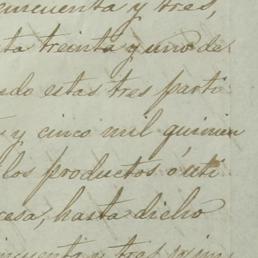 cincuenta y tres,
ta treinta y uno de
do estas tres parti
y cinco mil quinien
los productos o uti
esa, hasta dicho
incuenta y tres